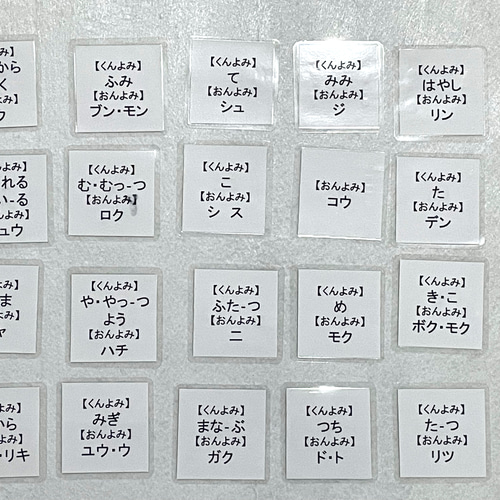 から
く
【くんよみ】
ふみ
【おんよみ】
ブン・モン
【くんよみ】
て
【おんよみ】
シュ
【くんよみ】
みみ
【おんよみ】
ジ
【くんよみ】
はやし
【おんよみ】
リン
れる
い-る
ュウ
【くんよみ】
む・むっ-つ
【おんよみ】
ロク
【くんよみ】
こ
【おんよみ】
シ ス
【おんよみ】
コウ
【くんよみ】
た
【おんよみ】
デン
ま
【くんよみ】
や・やっ-つ
よう
【おんよみ】
ハチ
【くんよみ】
ふた-つ
【おんよみ】
ニ
【くんよみ】
め
【おんよみ】
モク
【くんよみ】
き・こ
【おんよみ】
ボク・モク
から
・リキ
【くんよみ】
みぎ
【おんよみ】
ユウ・ウ
【くんよみ】
まな-ぶ
【おんよみ】
ガク
【くんよみ】
つち
【おんよみ】
ド・ト
【くんよみ】
た-つ
【おんよみ】
リツ